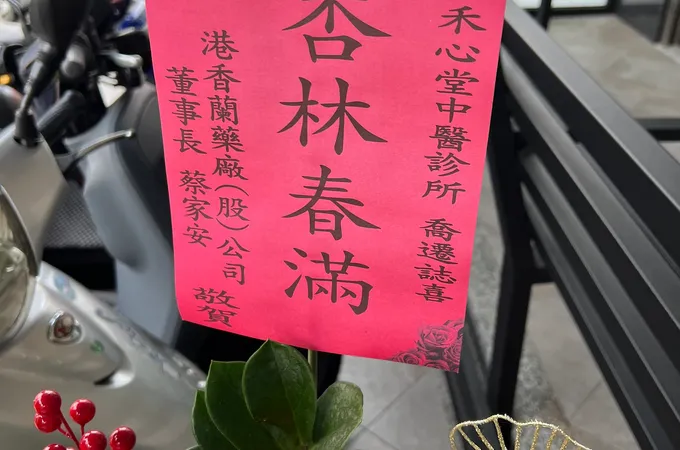 禾心堂中醫診所 喬遷誌喜
杏林春滿
港香蘭藥廠(股)公司
董事長 蔡家安 敬賀